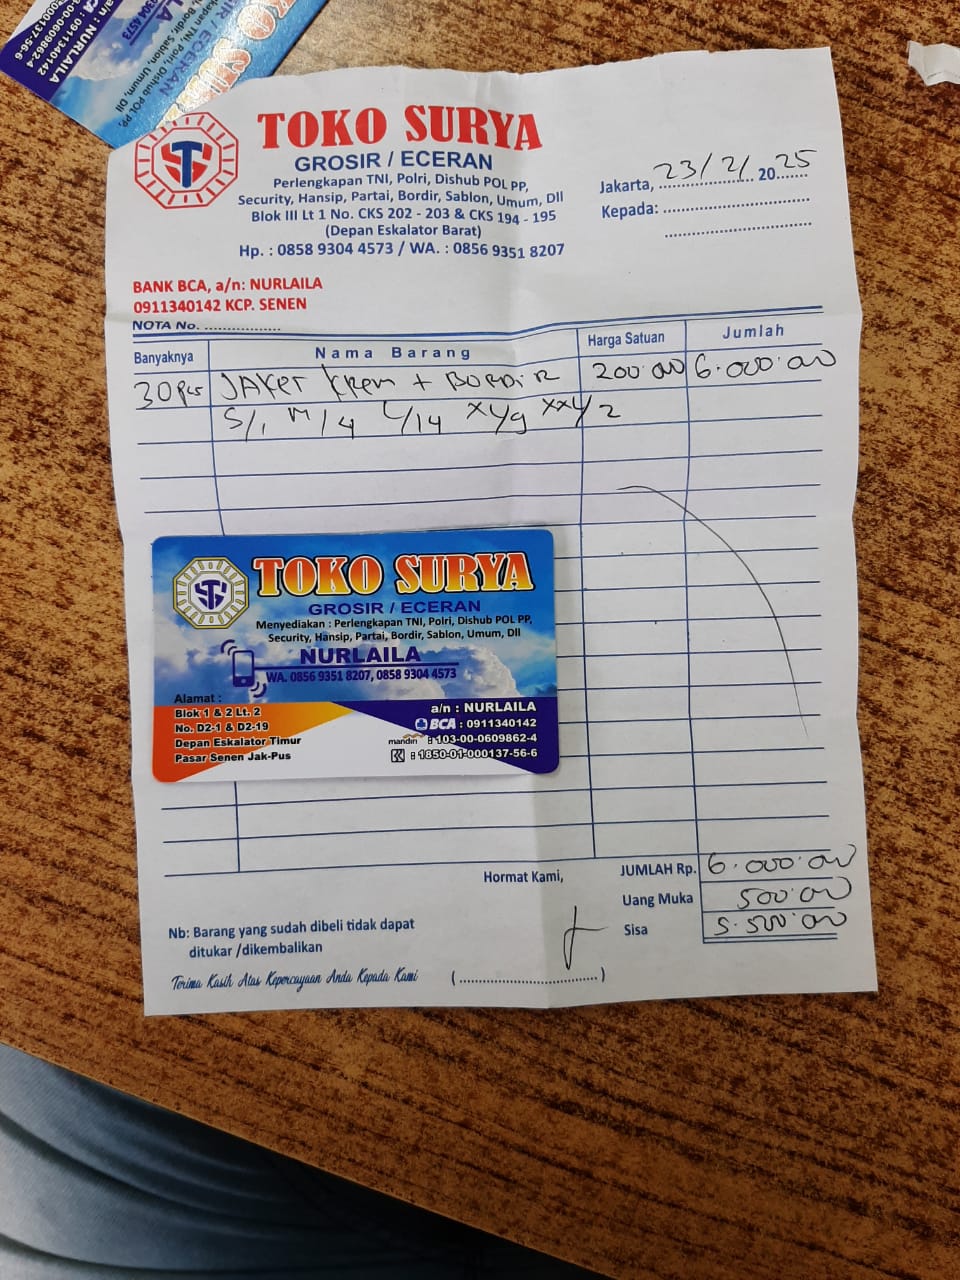 a/n : NURLAILA
BCA : 0911340142
TOKO SURYA
GROSIR / ECERAN
Perlengkapan TNI, Polri, Dishub POL PP,
Security, Hansip, Partai, Bordir, Sablon, Umum, Dll
Blok III Lt 1 No. CKS 202 - 203 & CKS 194 - 195
(Depan Eskalator Barat)
Hp. : 0858 9304 4573 / WA. : 0856 9351 8207
Jakarta, 23/2/ 2025
Kepada:
BANK BCA, a/n: NURLAILA
0911340142 KCP. SENEN
NOTA No.
Banyaknya Nama Barang Harga Satuan Jumlah
30 pcs JAKET KREM + BORDIR 200.000 6.000.000
S/1 M/4 L/14 XL/9 XXL/2
TOKO SURYA
GROSIR / ECERAN
Menyediakan : Perlengkapan TNI, Polri, Dishub POL PP,
Security, Hansip, Partai, Bordir, Sablon, Umum, Dll
NURLAILA
WA. 0856 9351 8207, 0858 9304 4573
Alamat :
Blok 1 & 2 Lt. 2
No. D2-1 & D2-19
Depan Eskalator Timur
Pasar Senen Jak-Pus
a/n : NURLAILA
BCA : 0911340142
mandiri : 103-00-0609862-4
: 1850-01-000137-56-6
Hormat Kami,
JUMLAH Rp. 6.000.000
Uang Muka 500.000
Sisa 5.500.000
Nb: Barang yang sudah dibeli tidak dapat
ditukar /dikembalikan
Terima Kasih Atas Kepercayaan Anda Kepada Kami
(..............................)